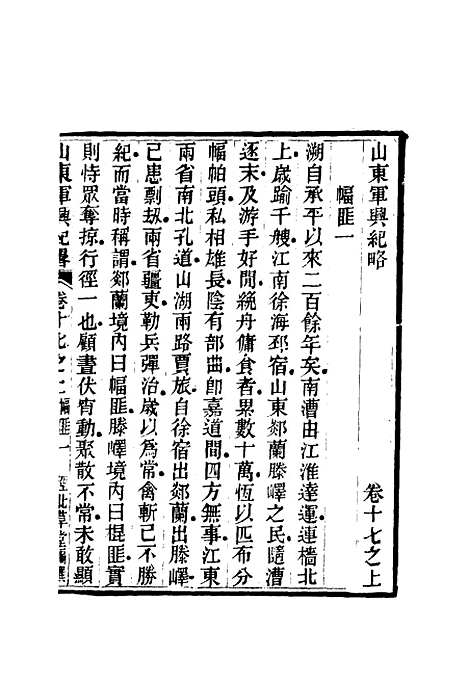 山東軍興紀略 卷十七之上
幅匪一
溯自承平以來二百餘年矣南漕由江淮達運連檣北
上歲踰千艘江南徐海邳宿山東郯蘭滕嶧之民隨漕
逐末及游手好閒統舟傭食者累數十萬恆以匹布分
幅帕頭私相雄長陰有部曲卽嘉道間四方無事江東
兩省南北孔道山湖兩路賈旅自徐宿出郯蘭出滕嶧
已患剽刼兩省疆吏勒兵彈治歲以爲常禽斬已不勝
紀而當時稱謂郯蘭境內曰幅匪滕嶧境內曰棍匪實
則恃眾奪掠行徑一也顧晝伏宵動聚散不常未敢顯
山東軍興紀畧 卷十七之上 幅匪一